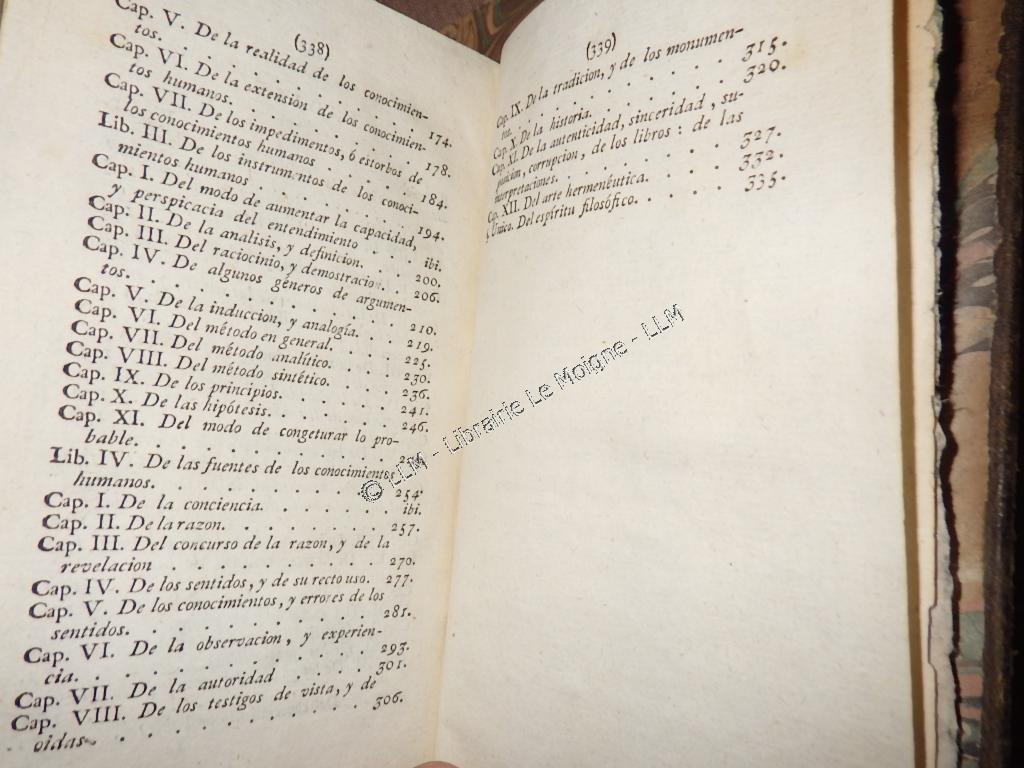 (338)
Cap. V. De la realidad de los conocimien-
tos. . . . . . . . . 174.
Cap. VI. De la extension de los conocimien-
tos humanos. . . . . . . . 178.
Cap. VII. De los impedimentos, ó estorbos de
los conocimientos humanos . . . . 184.
Lib. III. De los instrumentos de los conoci-
mientos humanos . . . . . . . 194.
Cap. I. Del modo de aumentar la capacidad,
y perspicacia del entendimiento . . ibi.
Cap. II. De la analisis, y definicion. . . 200.
Cap. III. Del raciocinio, y demostracion. . 206.
Cap. IV. De algunos géneros de argumen-
tos. . . . . . . . . 210.
Cap. V. De la induccion, y analogía. . . 219.
Cap. VI. Del método en general. . . . 225.
Cap. VII. Del método analítico. . . . 230.
Cap. VIII. Del método sintético. . . . 236.
Cap. IX. De los principios. . . . . 241.
Cap. X. De las hipótesis. . . . . . 246.
Cap. XI. Del modo de congeturar lo pro-
bable. . . . . . . . .
Lib. IV. De las fuentes de los conocimientos
humanos. . . . . . . . . 254.
Cap. I. De la conciencia. . . . . . ibi.
Cap. II. De la razon. . . . . . . 257.
Cap. III. Del concurso de la razon, y de la
revelacion . . . . . . . . 270.
Cap. IV. De los sentidos, y de su recto uso. 277.
Cap. V. De los conocimientos, y errores de los
sentidos. . . . . . . . . 281.
Cap. VI. De la observacion, y experien-
cia. . . . . . . . . . 293.
Cap. VII. De la autoridad . . . . . 301.
Cap. VIII. De los testigos de vista, y de
oidas . . . . . . . . . 306.
(339)
Cap. IX. De la tradicion, y de los monumen-
tos. . . . . . . . . 315.
Cap. X. De la historia. . . . . . 320.
Cap. XI. De la autenticidad, sinceridad, su-
posicion, corrupcion, de los libros: de las
interpretaciones. . . . . . . 327.
Cap. XII. Del arte hermenéutica. . . . 332.
§. Unico. Del espíritu filosófico. . . . 335.
© LLM - Librairie Le Moigne - LLM